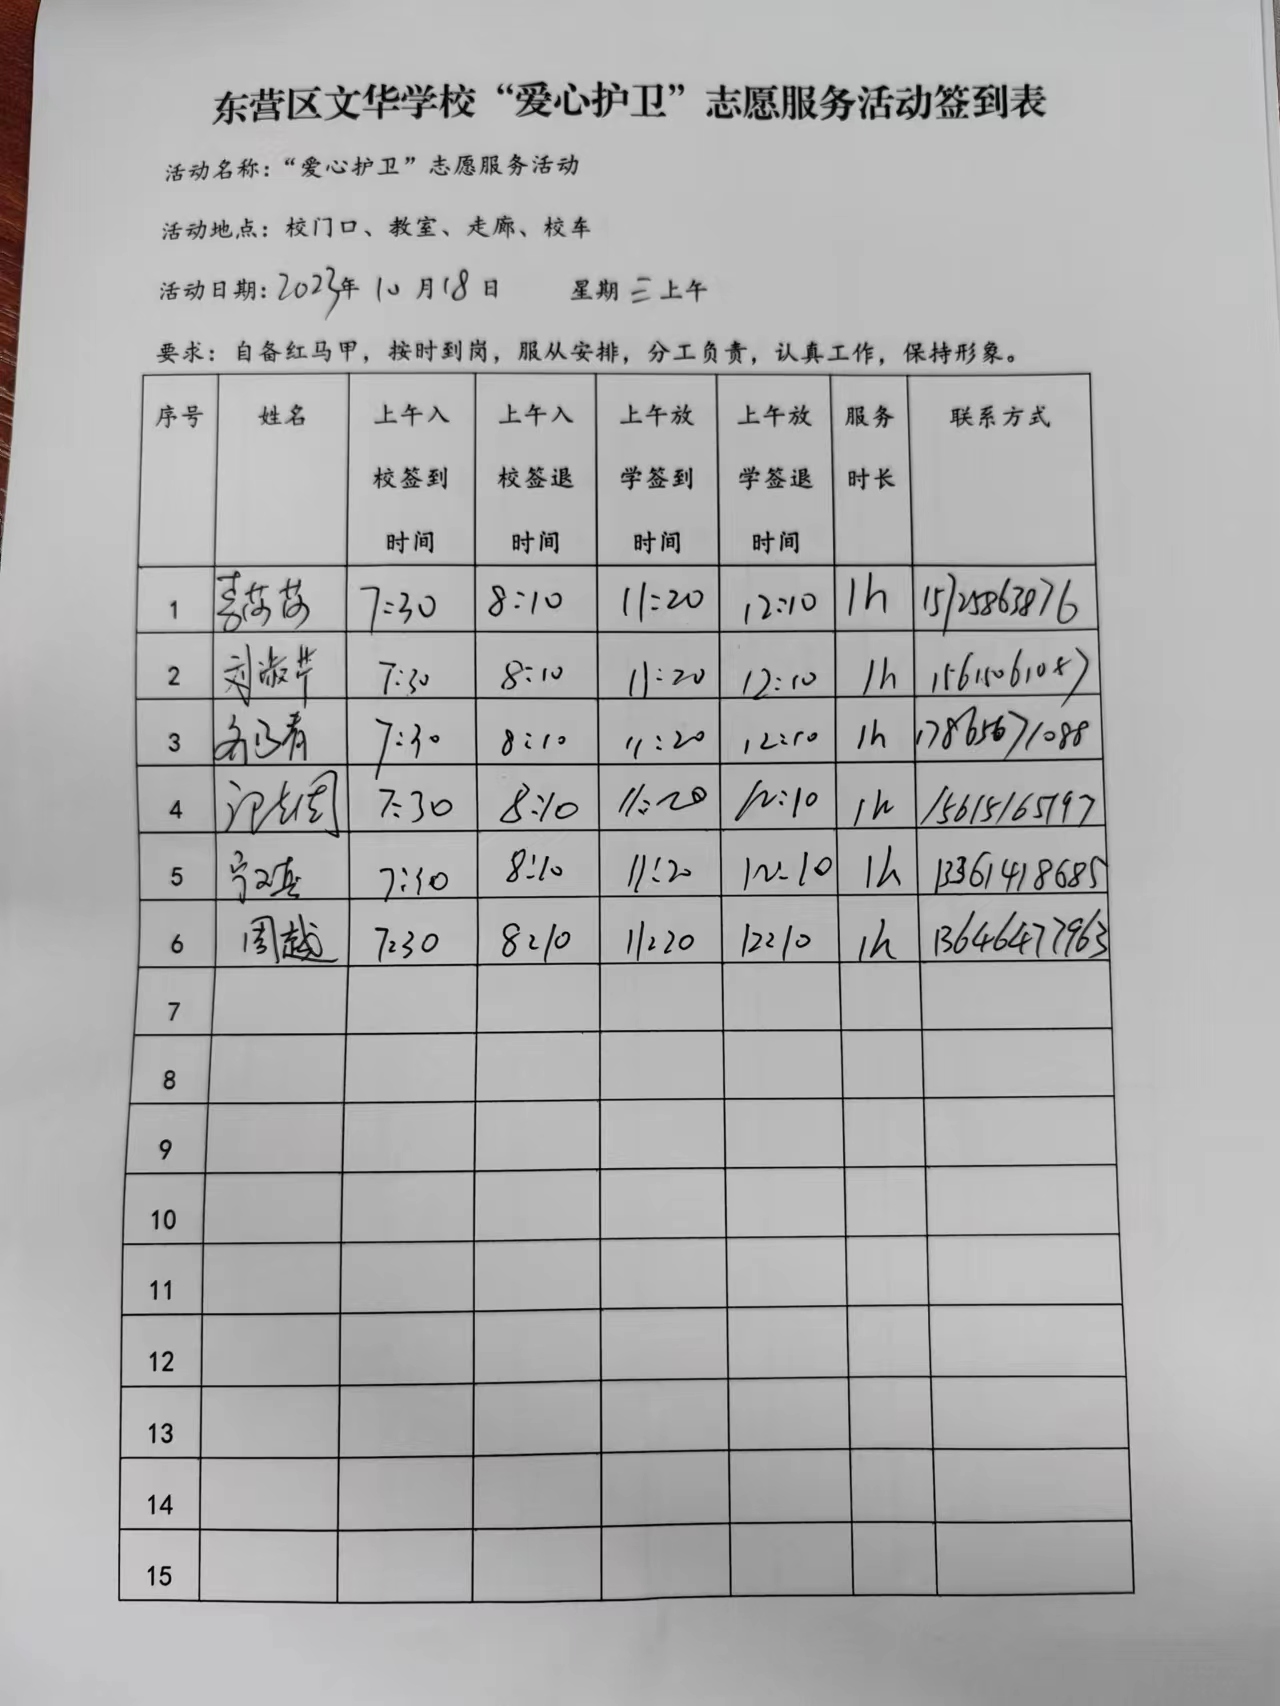 东营区文华学校“爱心护卫”志愿服务活动签到表
活动名称：“爱心护卫”志愿服务活动
活动地点：校门口、教室、走廊、校车
活动日期：2023年 10月18日 星期三上午
要求：自备红马甲，按时到岗，服从安排，分工负责，认真工作，保持形象。
序号 姓名 上午入校签到时间 上午入校签退时间 上午放学签到时间 上午放学签退时间 服务时长 联系方式
1 7:30 8:10 11:20 12:10 1h 15725863876
2 刘淑苹 7:30 8:10 11:20 12:10 1h 15615061087
3 7:30 8:10 11:20 12:10 1h 17865671088
4 7:30 8:10 11:20 12:10 1h 15615165197
5 7:30 8:10 11:20 12:10 1h 13361418685
6 周越 7:30 8:10 11:20 12:10 1h 13646477963
7
8
9
10
11
12
13
14
15